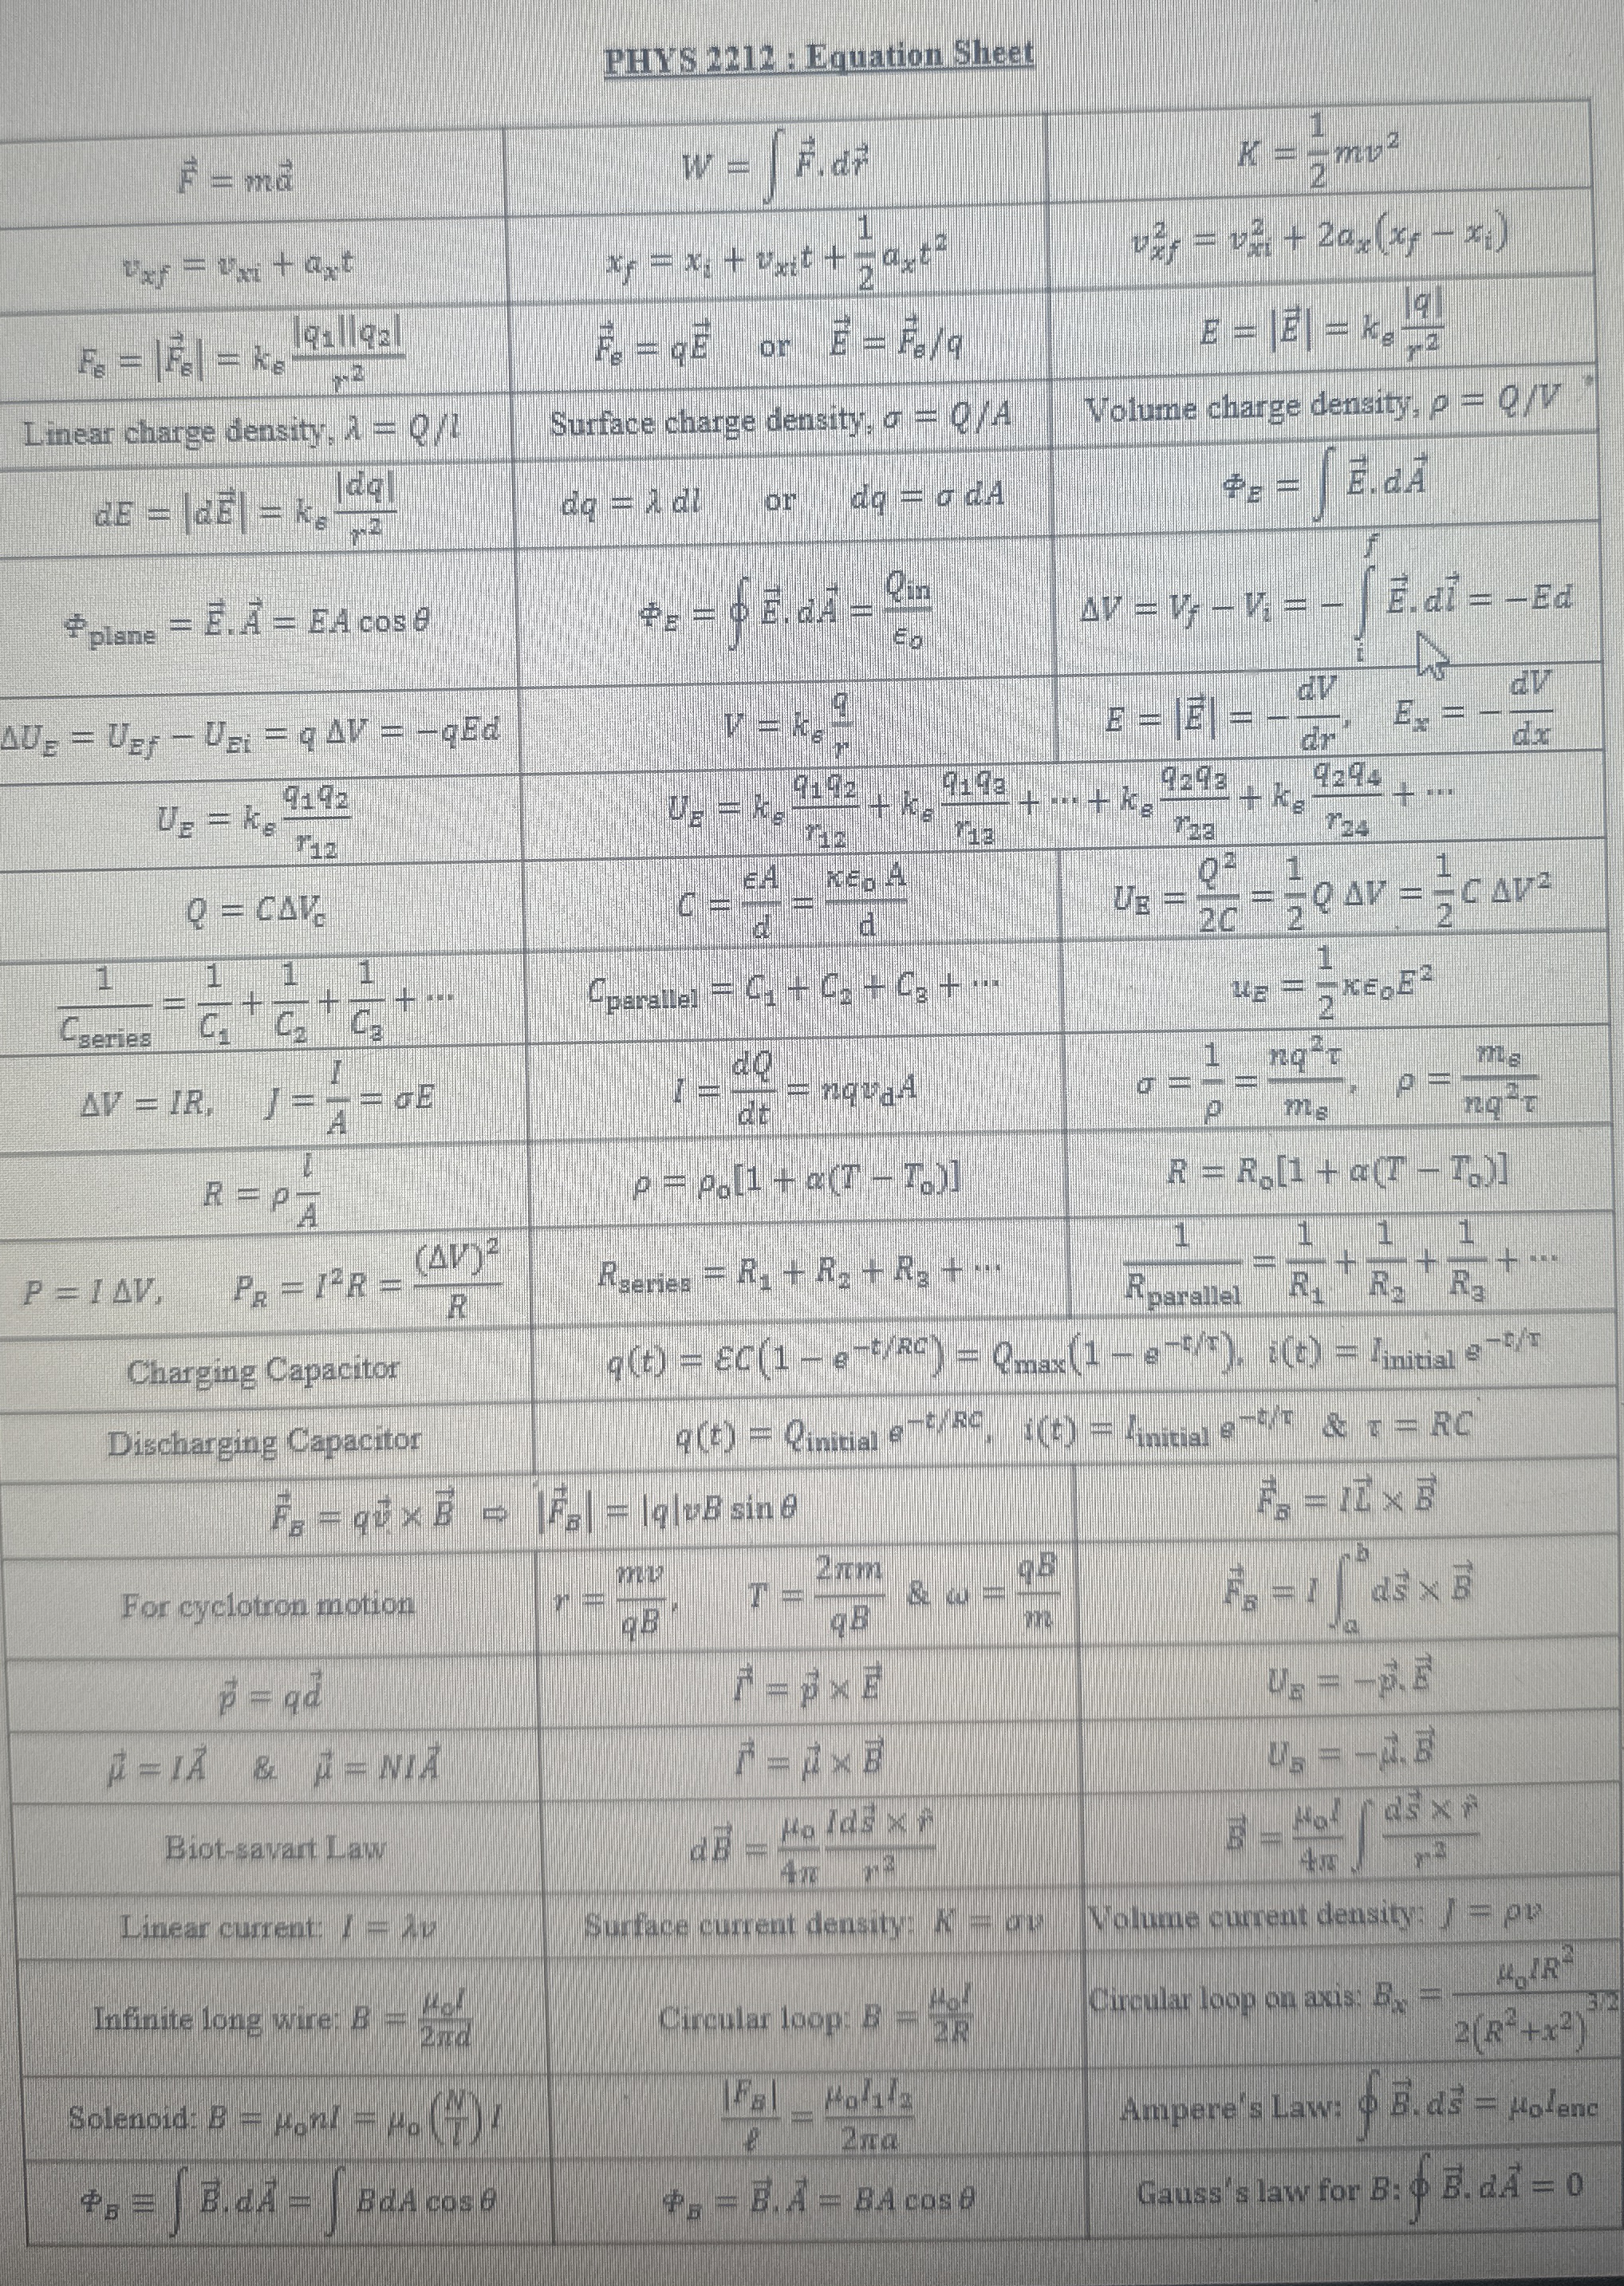 PHYS 2212 : Equation Sheet
$\vec{F} = m\vec{a}$ | $W = \int \vec{F}.d\vec{r}$ | $K = \frac{1}{2}mv^2$
$v_{xf} = v_{xi} + a_x t$ | $x_f = x_i + v_{xi}t + \frac{1}{2}a_x t^2$ | $v_{xf}^2 = v_{xi}^2 + 2a_x(x_f - x_i)$
$F_e = |\vec{F}_e| = k_e \frac{|q_1||q_2|}{r^2}$ | $\vec{F}_e = q\vec{E}$ or $\vec{E} = \vec{F}_e/q$ | $E = |\vec{E}| = k_e \frac{|q|}{r^2}$
Linear charge density, $\lambda = Q/l$ | Surface charge density, $\sigma = Q/A$ | Volume charge density, $\rho = Q/V$
$dE = |d\vec{E}| = k_e \frac{|dq|}{r^2}$ | $dq = \lambda\, dl$ or $dq = \sigma\, dA$ | $\Phi_E = \int \vec{E}.d\vec{A}$
$\Phi_{\text{plane}} = \vec{E}.\vec{A} = EA\cos\theta$ | $\Phi_E = \oint \vec{E}.d\vec{A} = \frac{Q_{\text{in}}}{\epsilon_o}$ | $\Delta V = V_f - V_i = -\int_i^f \vec{E}.d\vec{l} = -Ed$
$\Delta U_E = U_{Ef} - U_{Ei} = q\,\Delta V = -qEd$ | $V = k_e \frac{q}{r}$ | $E = |\vec{E}| = -\frac{dV}{dr}, \quad E_x = -\frac{dV}{dx}$
$U_E = k_e \frac{q_1 q_2}{r_{12}}$ | $U_E = k_e \frac{q_1 q_2}{r_{12}} + k_e \frac{q_1 q_3}{r_{13}} + \cdots + k_e \frac{q_2 q_3}{r_{23}} + k_e \frac{q_2 q_4}{r_{24}} + \cdots$
$Q = C\Delta V_c$ | $C = \frac{\epsilon A}{d} = \frac{\kappa\epsilon_o A}{d}$ | $U_E = \frac{Q^2}{2C} = \frac{1}{2}Q\,\Delta V = \frac{1}{2}C\,\Delta V^2$
$\frac{1}{C_{\text{series}}} = \frac{1}{C_1} + \frac{1}{C_2} + \frac{1}{C_3} + \cdots$ | $C_{\text{parallel}} = C_1 + C_2 + C_3 + \cdots$ | $u_E = \frac{1}{2}\kappa\epsilon_o E^2$
$\Delta V = IR, \quad J = \frac{I}{A} = \sigma E$ | $I = \frac{dQ}{dt} = nqv_d A$ | $\sigma = \frac{1}{\rho} = \frac{nq^2\tau}{m_e}, \quad \rho = \frac{m_e}{nq^2\tau}$
$R = \rho\frac{l}{A}$ | $\rho = \rho_o[1 + \alpha(T - T_o)]$ | $R = R_o[1 + \alpha(T - T_o)]$
$P = I\,\Delta V, \quad P_R = I^2R = \frac{(\Delta V)^2}{R}$ | $R_{\text{series}} = R_1 + R_2 + R_3 + \cdots$ | $\frac{1}{R_{\text{parallel}}} = \frac{1}{R_1} + \frac{1}{R_2} + \frac{1}{R_3} + \cdots$
Charging Capacitor | $q(t) = \mathcal{E}C(1 - e^{-t/RC}) = Q_{\text{max}}(1 - e^{-t/\tau}), \; i(t) = I_{\text{initial}}\, e^{-t/\tau}$
Discharging Capacitor | $q(t) = Q_{\text{initial}}\, e^{-t/RC}, \; i(t) = I_{\text{initial}}\, e^{-t/\tau}$ & $\tau = RC$
$\vec{F}_B = q\vec{v} \times \vec{B} \Rightarrow |\vec{F}_B| = |q|vB\sin\theta$ | $\vec{F}_B = I\vec{L} \times \vec{B}$
For cyclotron motion | $r = \frac{mv}{qB}, \quad T = \frac{2\pi m}{qB}$ & $\omega = \frac{qB}{m}$ | $\vec{F}_B = I\int_a^b d\vec{s} \times \vec{B}$
$\vec{p} = q\vec{d}$ | $\vec{\Gamma} = \vec{p} \times \vec{E}$ | $U_E = -\vec{p}.\vec{E}$
$\vec{\mu} = I\vec{A}$ & $\vec{\mu} = NI\vec{A}$ | $\vec{\Gamma} = \vec{\mu} \times \vec{B}$ | $U_B = -\vec{\mu}.\vec{B}$
Biot-savart Law | $d\vec{B} = \frac{\mu_o}{4\pi}\frac{Id\vec{s} \times \hat{r}}{r^2}$ | $\vec{B} = \frac{\mu_o I}{4\pi}\int \frac{d\vec{s} \times \hat{r}}{r^2}$
Linear current: $I = \lambda v$ | Surface current density: $K = \sigma v$ | Volume current density: $J = \rho v$
Infinite long wire: $B = \frac{\mu_o I}{2\pi d}$ | Circular loop: $B = \frac{\mu_o I}{2R}$ | Circular loop on axis: $B_x = \frac{\mu_o IR^2}{2(R^2+x^2)^{3/2}}$
Solenoid: $B = \mu_o nI = \mu_o\left(\frac{N}{l}\right)I$ | $\frac{|F_B|}{\ell} = \frac{\mu_o I_1 I_2}{2\pi a}$ | Ampere's Law: $\oint \vec{B}.d\vec{s} = \mu_o I_{\text{enc}}$
$\Phi_B \equiv \int \vec{B}.d\vec{A} = \int BdA\cos\theta$ | $\Phi_B = \vec{B}.\vec{A} = BA\cos\theta$ | Gauss's law for $B$: $\oint \vec{B}.d\vec{A} = 0$